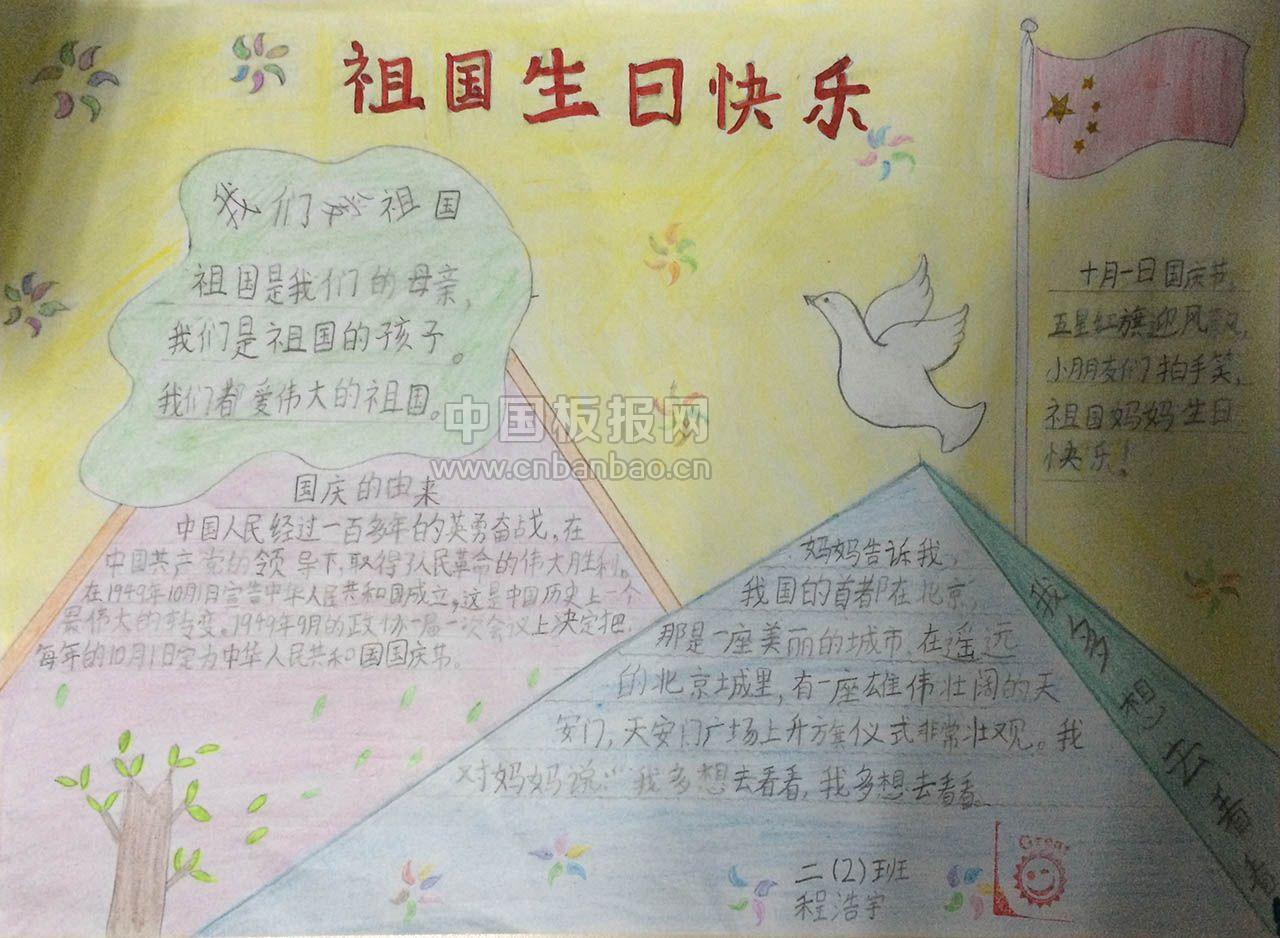 祖国生日快乐
我们爱祖国
祖国是我们的母亲，
我们是祖国的孩子。
我们都爱伟大的祖国。
中国板报网
www.cnbanbao.cn
国庆的由来
中国人民经过一百多年的英勇奋战，在
中国共产党的领导下，取得了人民革命的伟大胜利。
在1949年10月1日宣告中华人民共和国成立，这是中国历史上一个
最伟大的转变。1949年9月的政协一届一次会议上决定把
每年的10月1日定为中华人民共和国国庆节。
十月一日国庆节，
五星红旗迎风飘，
小朋友们拍手笑，
祖国妈妈生日
快乐！
我多想去看看
妈妈告诉我，
我国的首都在北京，
那是一座美丽的城市，在遥远
的北京城里，有一座雄伟壮阔的天
安门，天安门广场上升旗仪式非常壮观。我
对妈妈说：“我多想去看看，我多想去看看。
二（2）班
程浩宇
Great